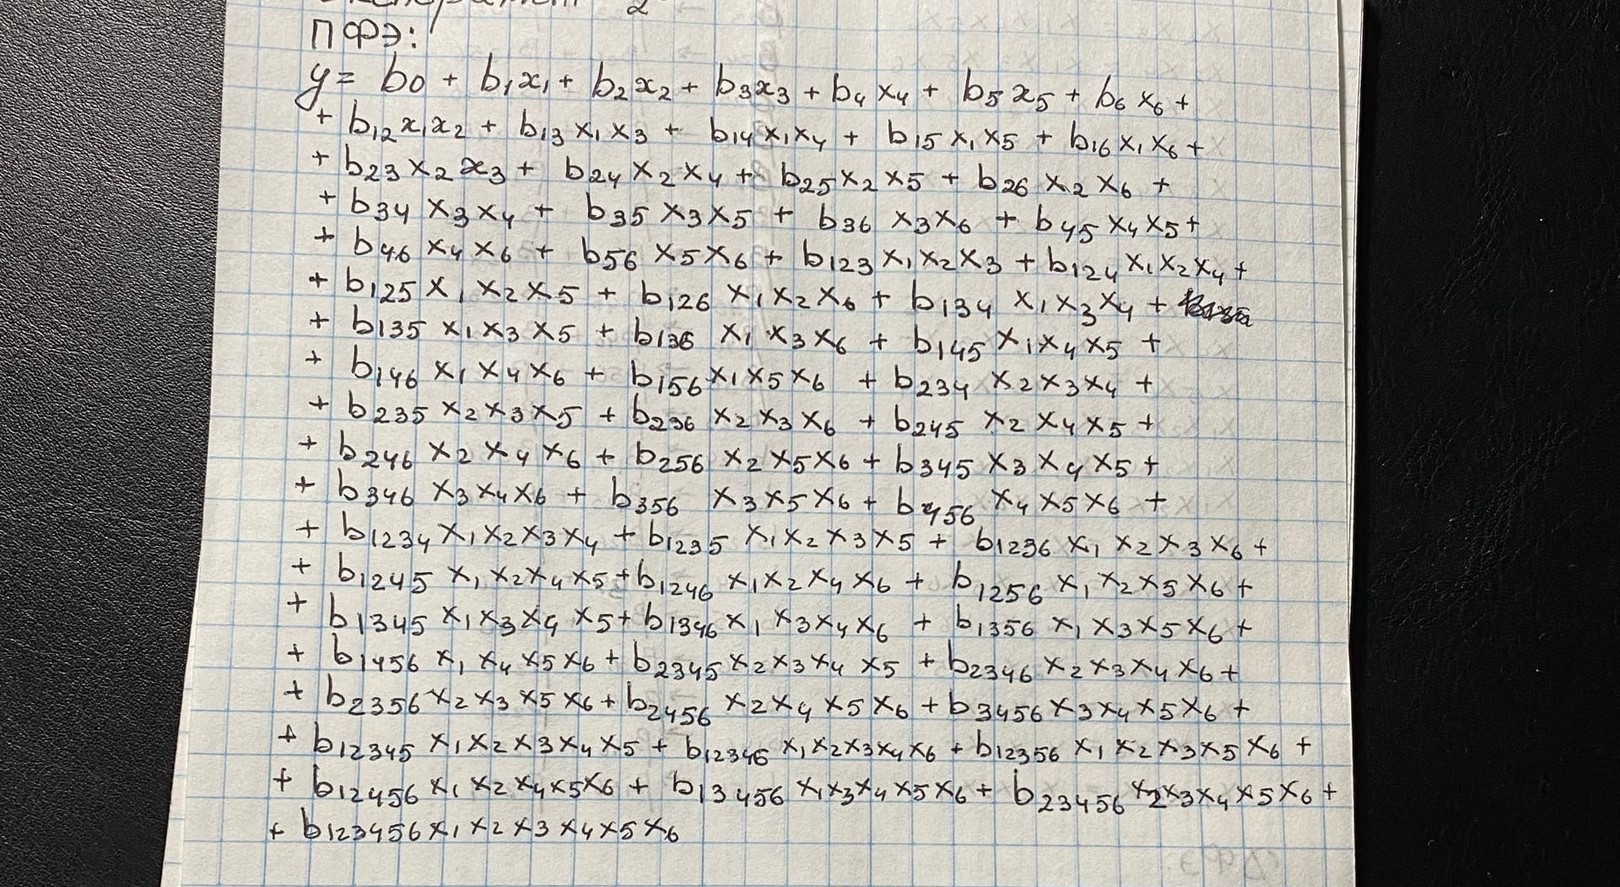 2
ПФЭ:
y = b0 + b1x1 + b2x2 + b3x3 + b4x4 + b5x5 + b6x6 +
+ b12x1x2 + b13x1x3 + b14x1x4 + b15x1x5 + b16x1x6 +
+ b23x2x3 + b24x2x4 + b25x2x5 + b26x2x6 +
+ b34x3x4 + b35x3x5 + b36x3x6 + b45x4x5 +
+ b46x4x6 + b56x5x6 + b123x1x2x3 + b124x1x2x4 +
+ b125x1x2x5 + b126x1x2x6 + b134x1x3x4 +
+ b135x1x3x5 + b136x1x3x6 + b145x1x4x5 +
+ b146x1x4x6 + b156x1x5x6 + b234x2x3x4 +
+ b235x2x3x5 + b236x2x3x6 + b245x2x4x5 +
+ b246x2x4x6 + b256x2x5x6 + b345x3x4x5 +
+ b346x3x4x6 + b356x3x5x6 + b456x4x5x6 +
+ b1234x1x2x3x4 + b1235x1x2x3x5 + b1236x1x2x3x6 +
+ b1245x1x2x4x5 + b1246x1x2x4x6 + b1256x1x2x5x6 +
+ b1345x1x3x4x5 + b1346x1x3x4x6 + b1356x1x3x5x6 +
+ b1456x1x4x5x6 + b2345x2x3x4x5 + b2346x2x3x4x6 +
+ b2356x2x3x5x6 + b2456x2x4x5x6 + b3456x3x4x5x6 +
+ b12345x1x2x3x4x5 + b12346x1x2x3x4x6 + b12356x1x2x3x5x6 +
+ b12456x1x2x4x5x6 + b13456x1x3x4x5x6 + b23456x2x3x4x5x6 +
+ b123456x1x2x3x4x5x6